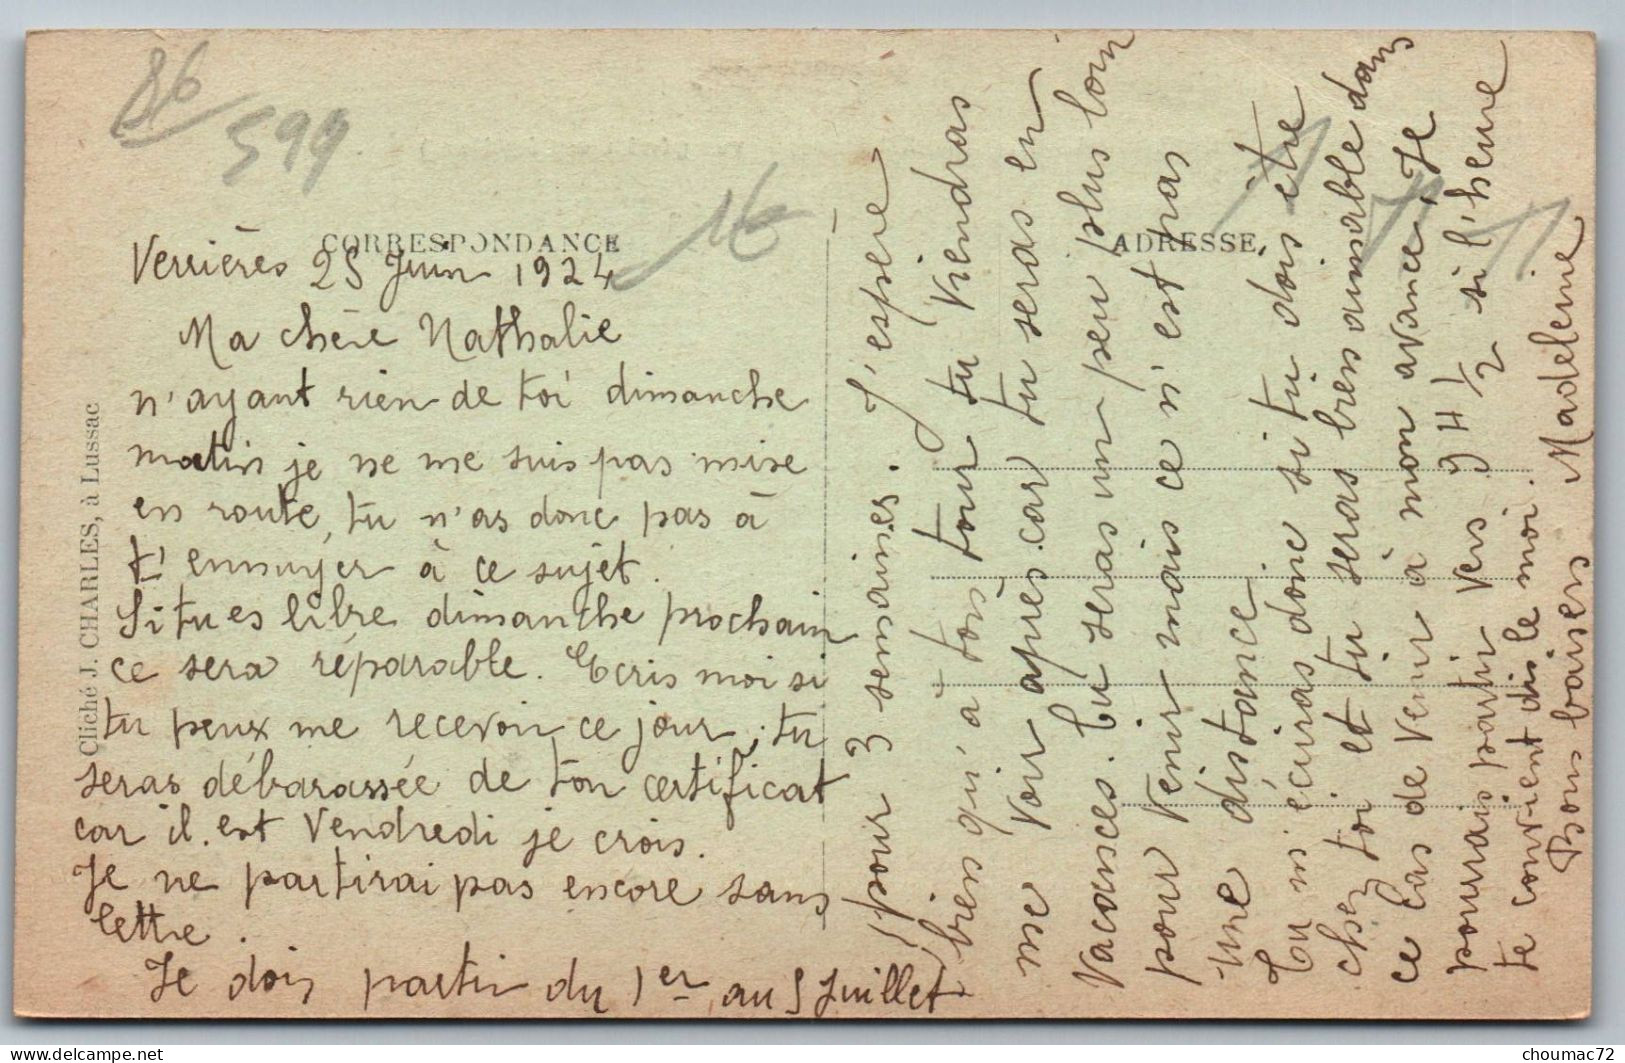 86
599
16
CORRESPONDANCE
ADRESSE
Cliché J. CHARLES, à Lussac
Verrières 25 Juin 1924
Ma chère Nathalie
n'ayant rien de toi dimanche
matin je ne me suis pas mise
en route, tu n'as donc pas à
t'ennuyer à ce sujet.
Si tu es libre dimanche prochain
ce sera réparable. Ecris moi si
tu peux me recevoir ce jour, tu
seras débarassée de ton certificat
car il est Vendredi je crois.
Je ne partirai pas encore sans
lettre.
Je dois partir du 1er au 5 Juillet
pour 3 semaines. J'espère
bien qu'à ton tour tu viendras
me voir après car tu seras en
vacances. Tu seras un peu plus loin
pour venir mais ce n'est pas
une distance.
Tu m'écriras donc si tu dois être
chez toi et tu seras bien aimable dans
ce cas de venir à mon avance, Je
pourrais partir vers 9 H 1/2 si l'heure
te convient dis le moi.
Bons baisers Madeleine
choumac72